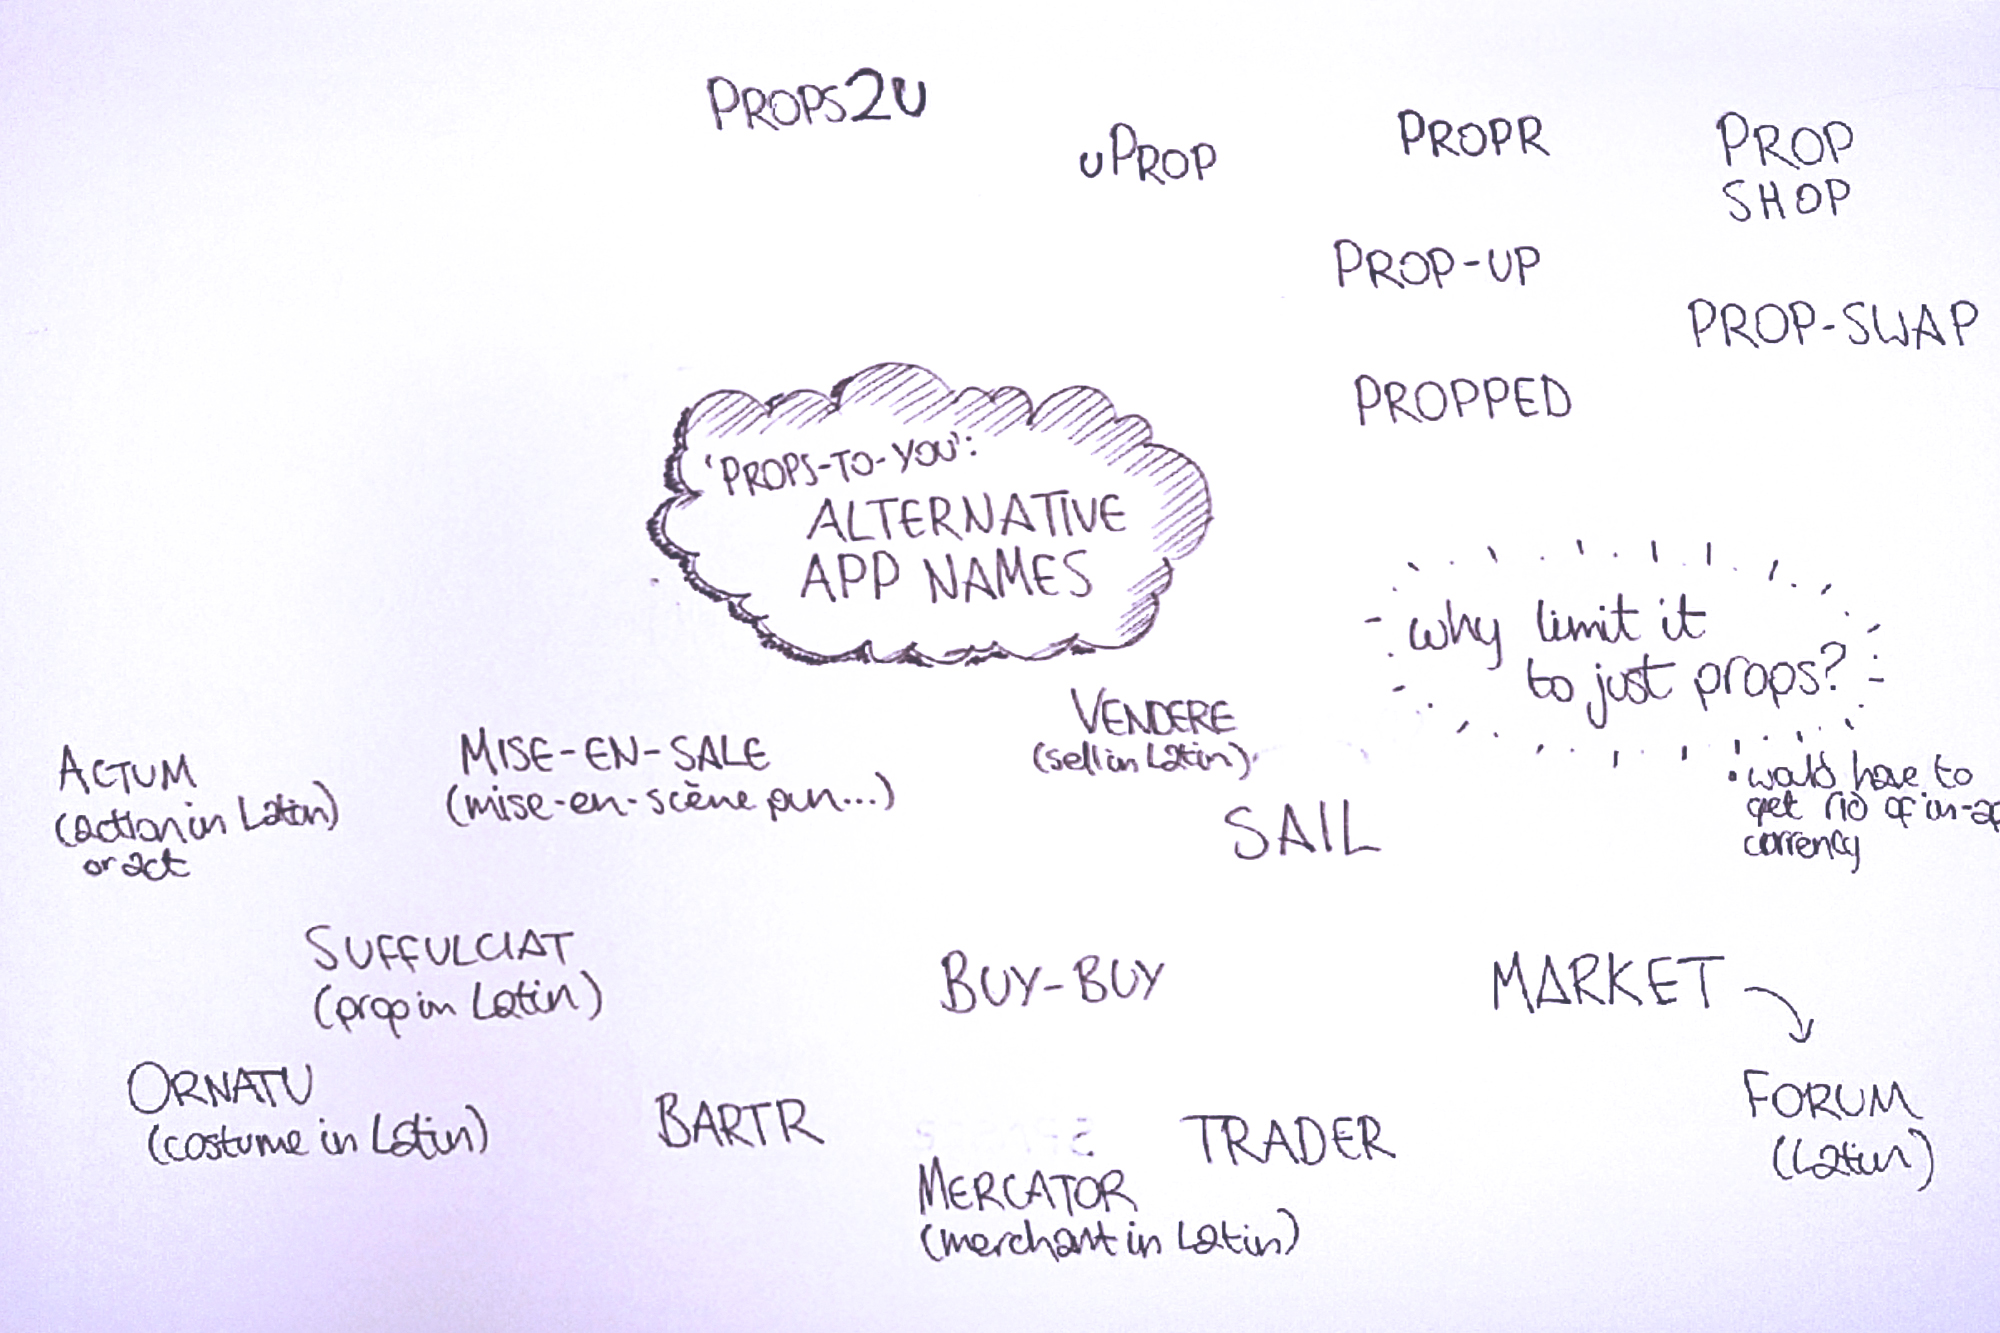 PROPS2U
uPROP
PROPR
PROP
SHOP
PROP-UP
PROP-SWAP
PROPPED
'PROPS-TO-YOU':
ALTERNATIVE
APP NAMES
why limit it
to just props?
• would have to
get rid of in-ap
currency
VENDERE
(sell in Latin)
MISE-EN-SALE
(mise-en-scène pun...)
ACTUM
(action in Latin)
or act
SAIL
SUFFULCIAT
(prop in Latin)
BUY-BUY
MARKET
FORUM
(Latin)
ORNATU
(costume in Latin)
BARTR
TRADER
MERCATOR
(merchant in Latin)